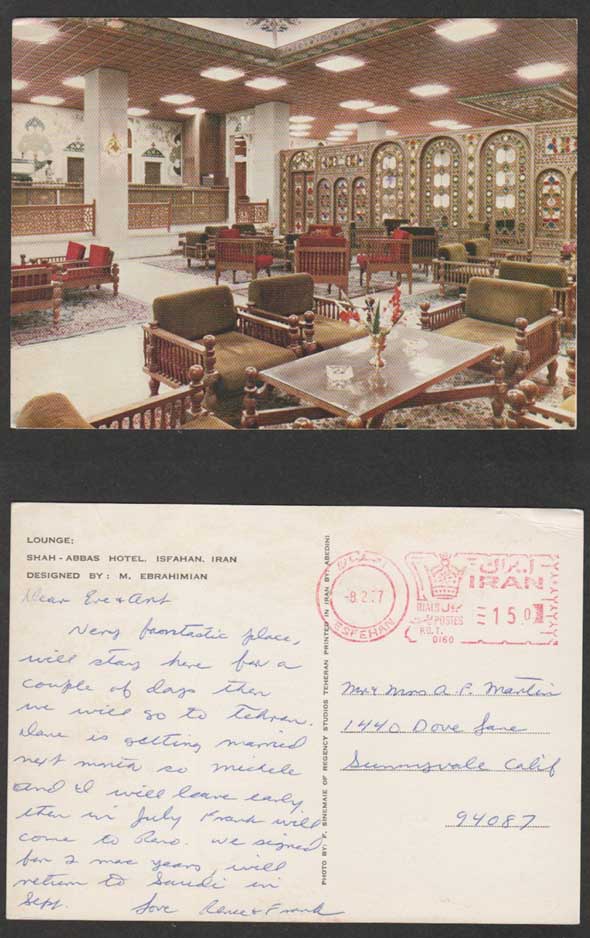 LOUNGE:
SHAH - ABBAS HOTEL, ISFAHAN, IRAN
DESIGNED BY : M. EBRAHIMIAN
Dear Eve & Art
Very fantastic place,
will stay here for a
couple of days then
we will go to Tehran.
Dave is getting married
next month so Michele
and I will leave early,
then in July Frank will
come to Reno. We signed
for 2 more years, will
return to Saudi in
Sept. Love Renee & Frank
PHOTO BY: F. SINEMAIE OF REGENCY STUDIOS TEHERAN PRINTED IN IRAN BY: ABEDINI
-8.2.77
ESFEHAN
ایران
IRAN
RIALS ریال
POSTES
R.G.T.
0160
150
Mr & Mrs A. P. Martin
1440 Dove Lane
Sunnyvale Calif
94087